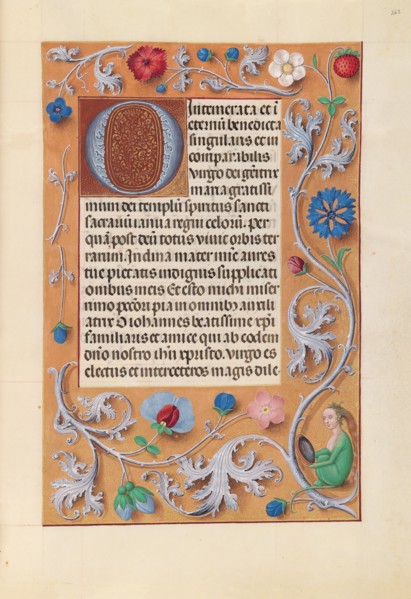 O intemerata et i
eternū benedicta
singularis et in
comparabilis
virgo dei genitrix
maria gratissi
mum dei templū spiritus sancti
sacrariū ianua regni celorū. Per
quā post deū totus vivit orbis ter
rarum. Inclina mater mie aures
tue pietatis indignis supplicati
onibus meis Et esto michi miser
rimo pctōri pia in omnibꝯ auxili
atrix O iohannes beatissime xpī
familiaris et amice qui ab eodem
dnō nostro ihū xpristo. virgo es
electus et inter ceteros magis dile